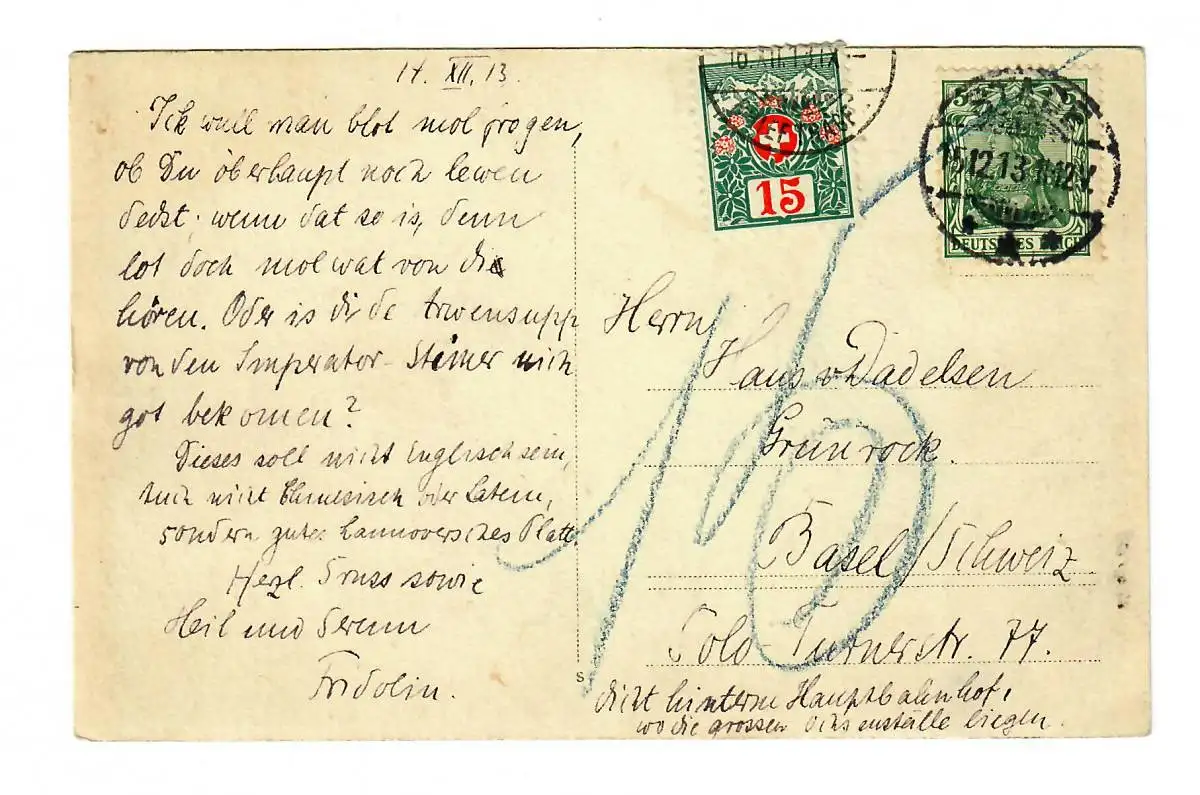 14. XII. 13.
Ick wull man blot mol frogen,
ob Du öberhaupt noch lewen
deist; wenn dat so is, denn
lot doch mol wat von die
hören. Oder is di de Arwensupp
von den Imperator-Steiner nich
got bekomen?
Dieses soll nicht Englisch sein,
auch nicht Chinesisch oder Latein,
sondern gutes hannoversches Platt.
Herzl. Gruss sowie
Heil und Serum
Fridolin.
S
16.XII.13.IX-
15
5
5
15.12.13.11-12V.
DEUTSCHES REICH
15
Herrn
Hans v Dadelsen
Grünrock.
Basel/Schweiz
Solo-Turnerstr. 77.
dicht hinterm Hauptbahnhof,
wo die grossen Ochsenställe liegen.